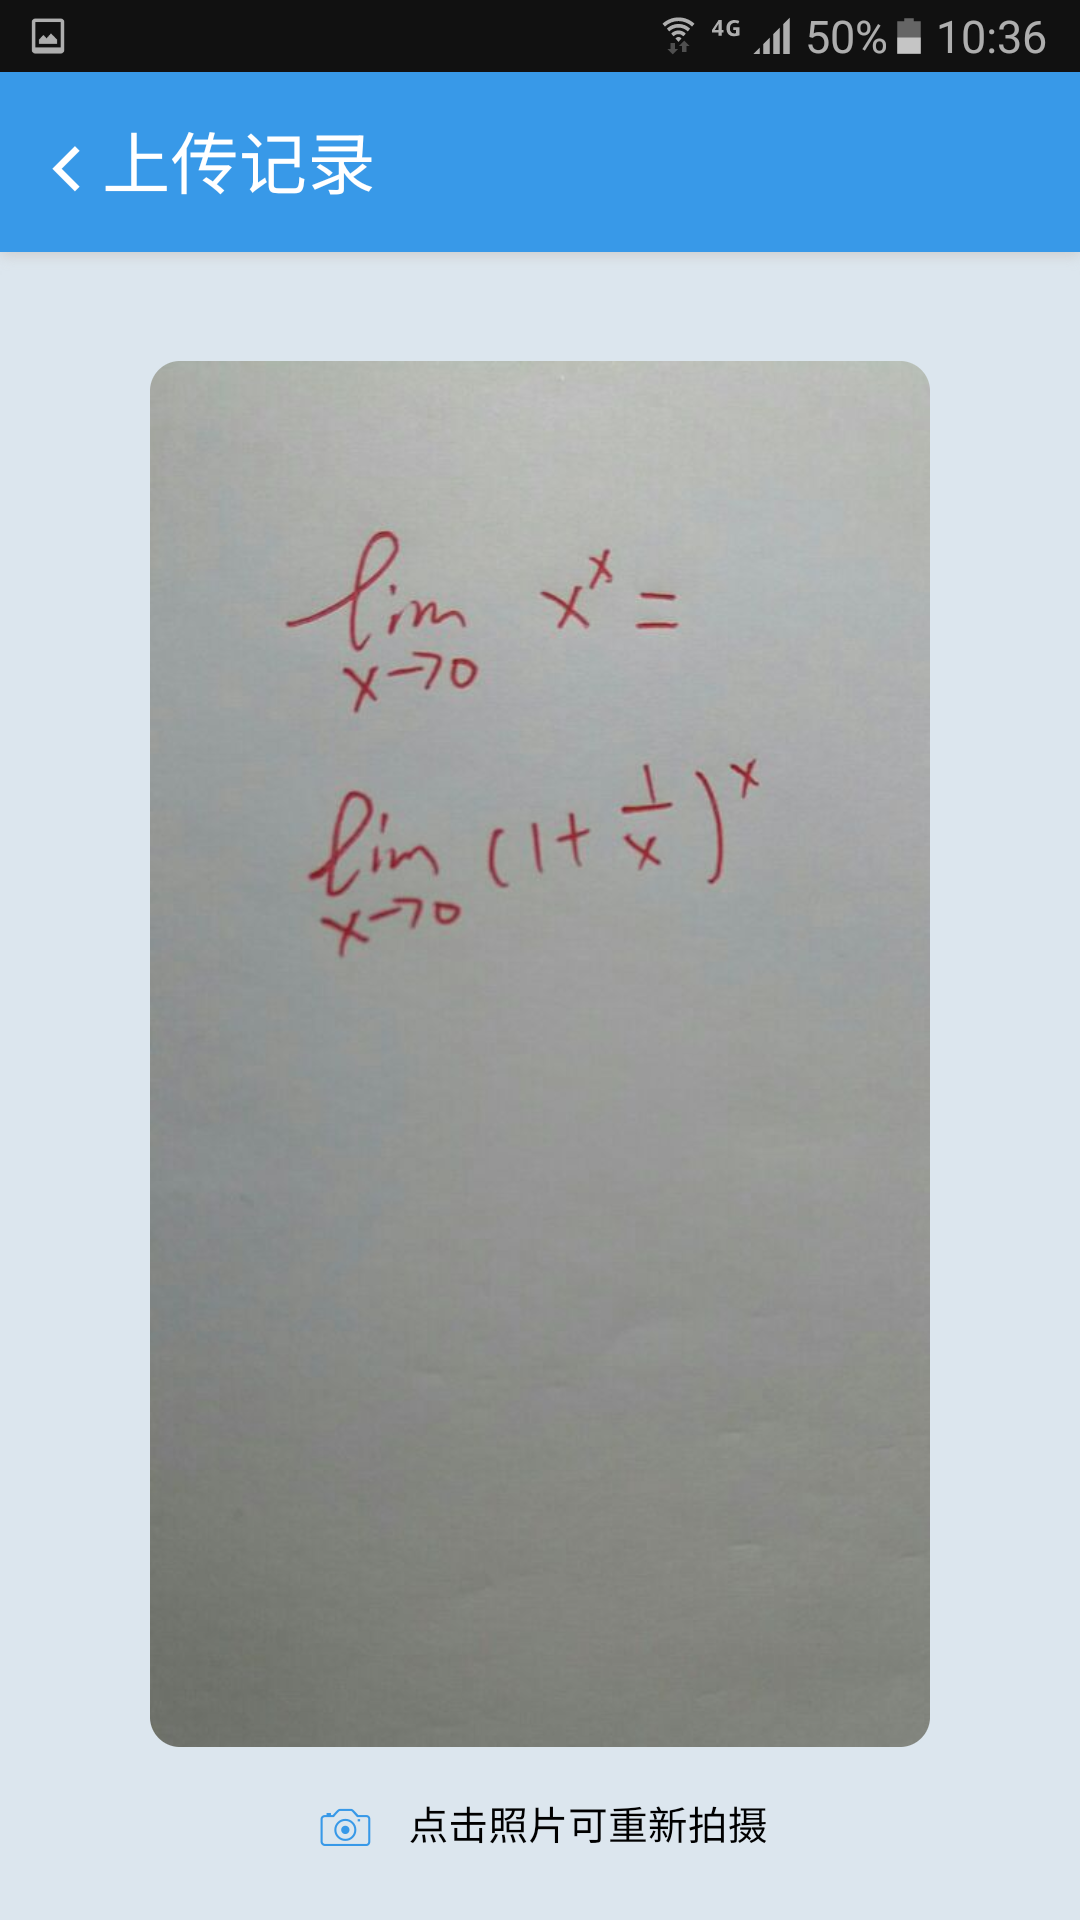 4G 50% 10:36
上传记录
lim x^x =
x→0
lim (1+1/x)^x
x→0
点击照片可重新拍摄